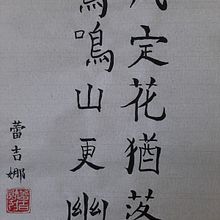 定花猶落
鳥鳴山更幽
蕾吉娜